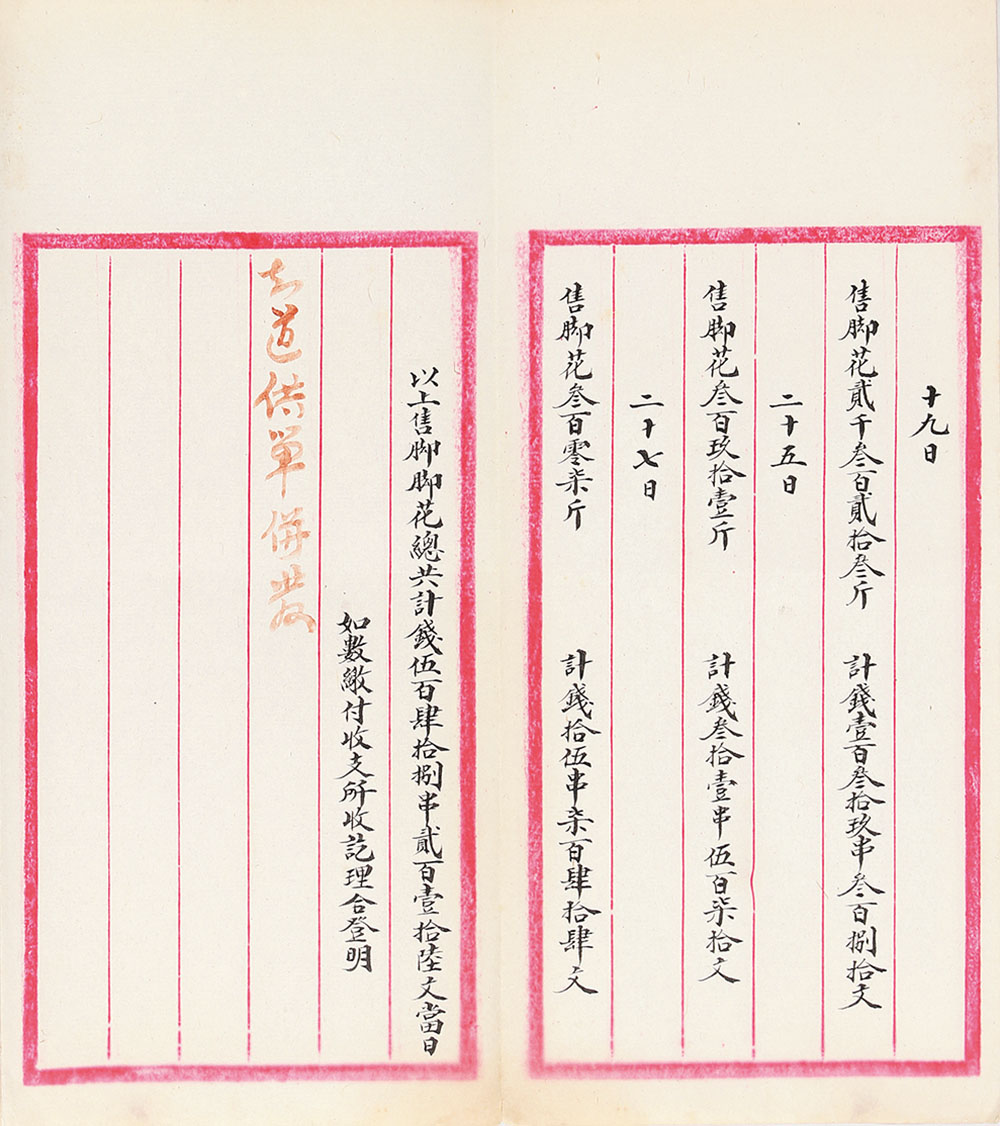 十九日
售脚花貳千叁百貳拾叁斤 計錢壹百叁拾玖串叁百捌拾文
二十五日
售脚花叁百玖拾壹斤 計錢叁拾壹串伍百柒拾文
二十七日
售脚花叁百零柒斤 計錢拾伍串柒百肆拾肆文
以上售脚脚花總共計錢伍百肆拾捌串貳百壹拾陸文當日
如數繳付收支所收訖理合登明
道供單併發